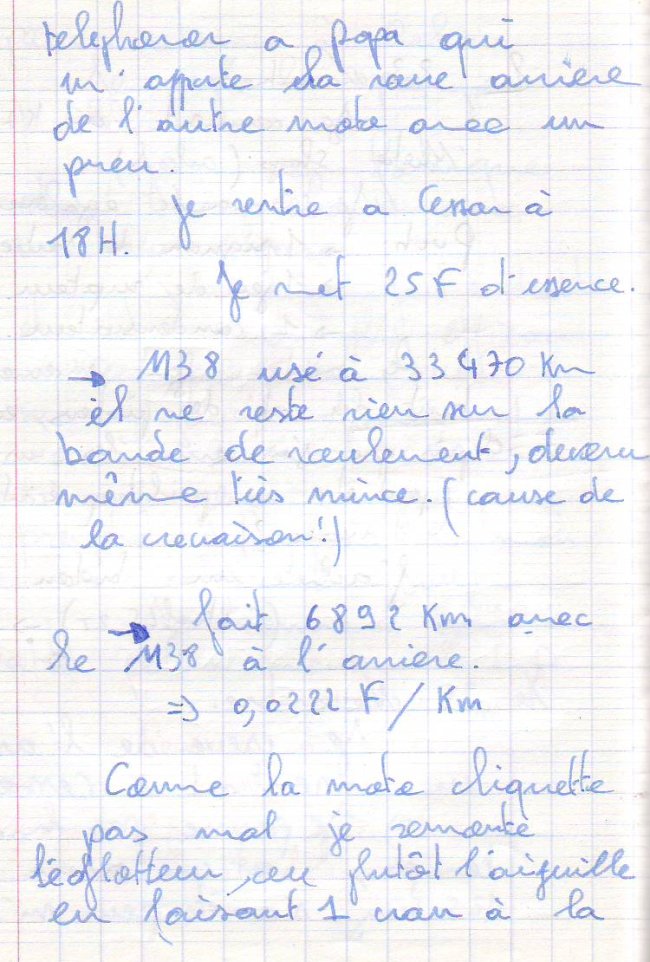 telephoner a papa qui
m'apporte la roue arriere
de l'autre moto avec un
pneu.
je rentre a Cesson à
18H.
Je met 25F d'essence.
→ M38 usé à 33470 Km
il ne reste rien sur la
bande de roulement, devenu
même très mince. (cause de
la crevaison!)
→ fait 6892 Km avec
le M38 à l'arriere.
=> 0,0222 F/Km
Comme la moto cliquette
pas mal je remonte
le flotteur, ou plutôt l'aiguille
en faisant 1 cran à la